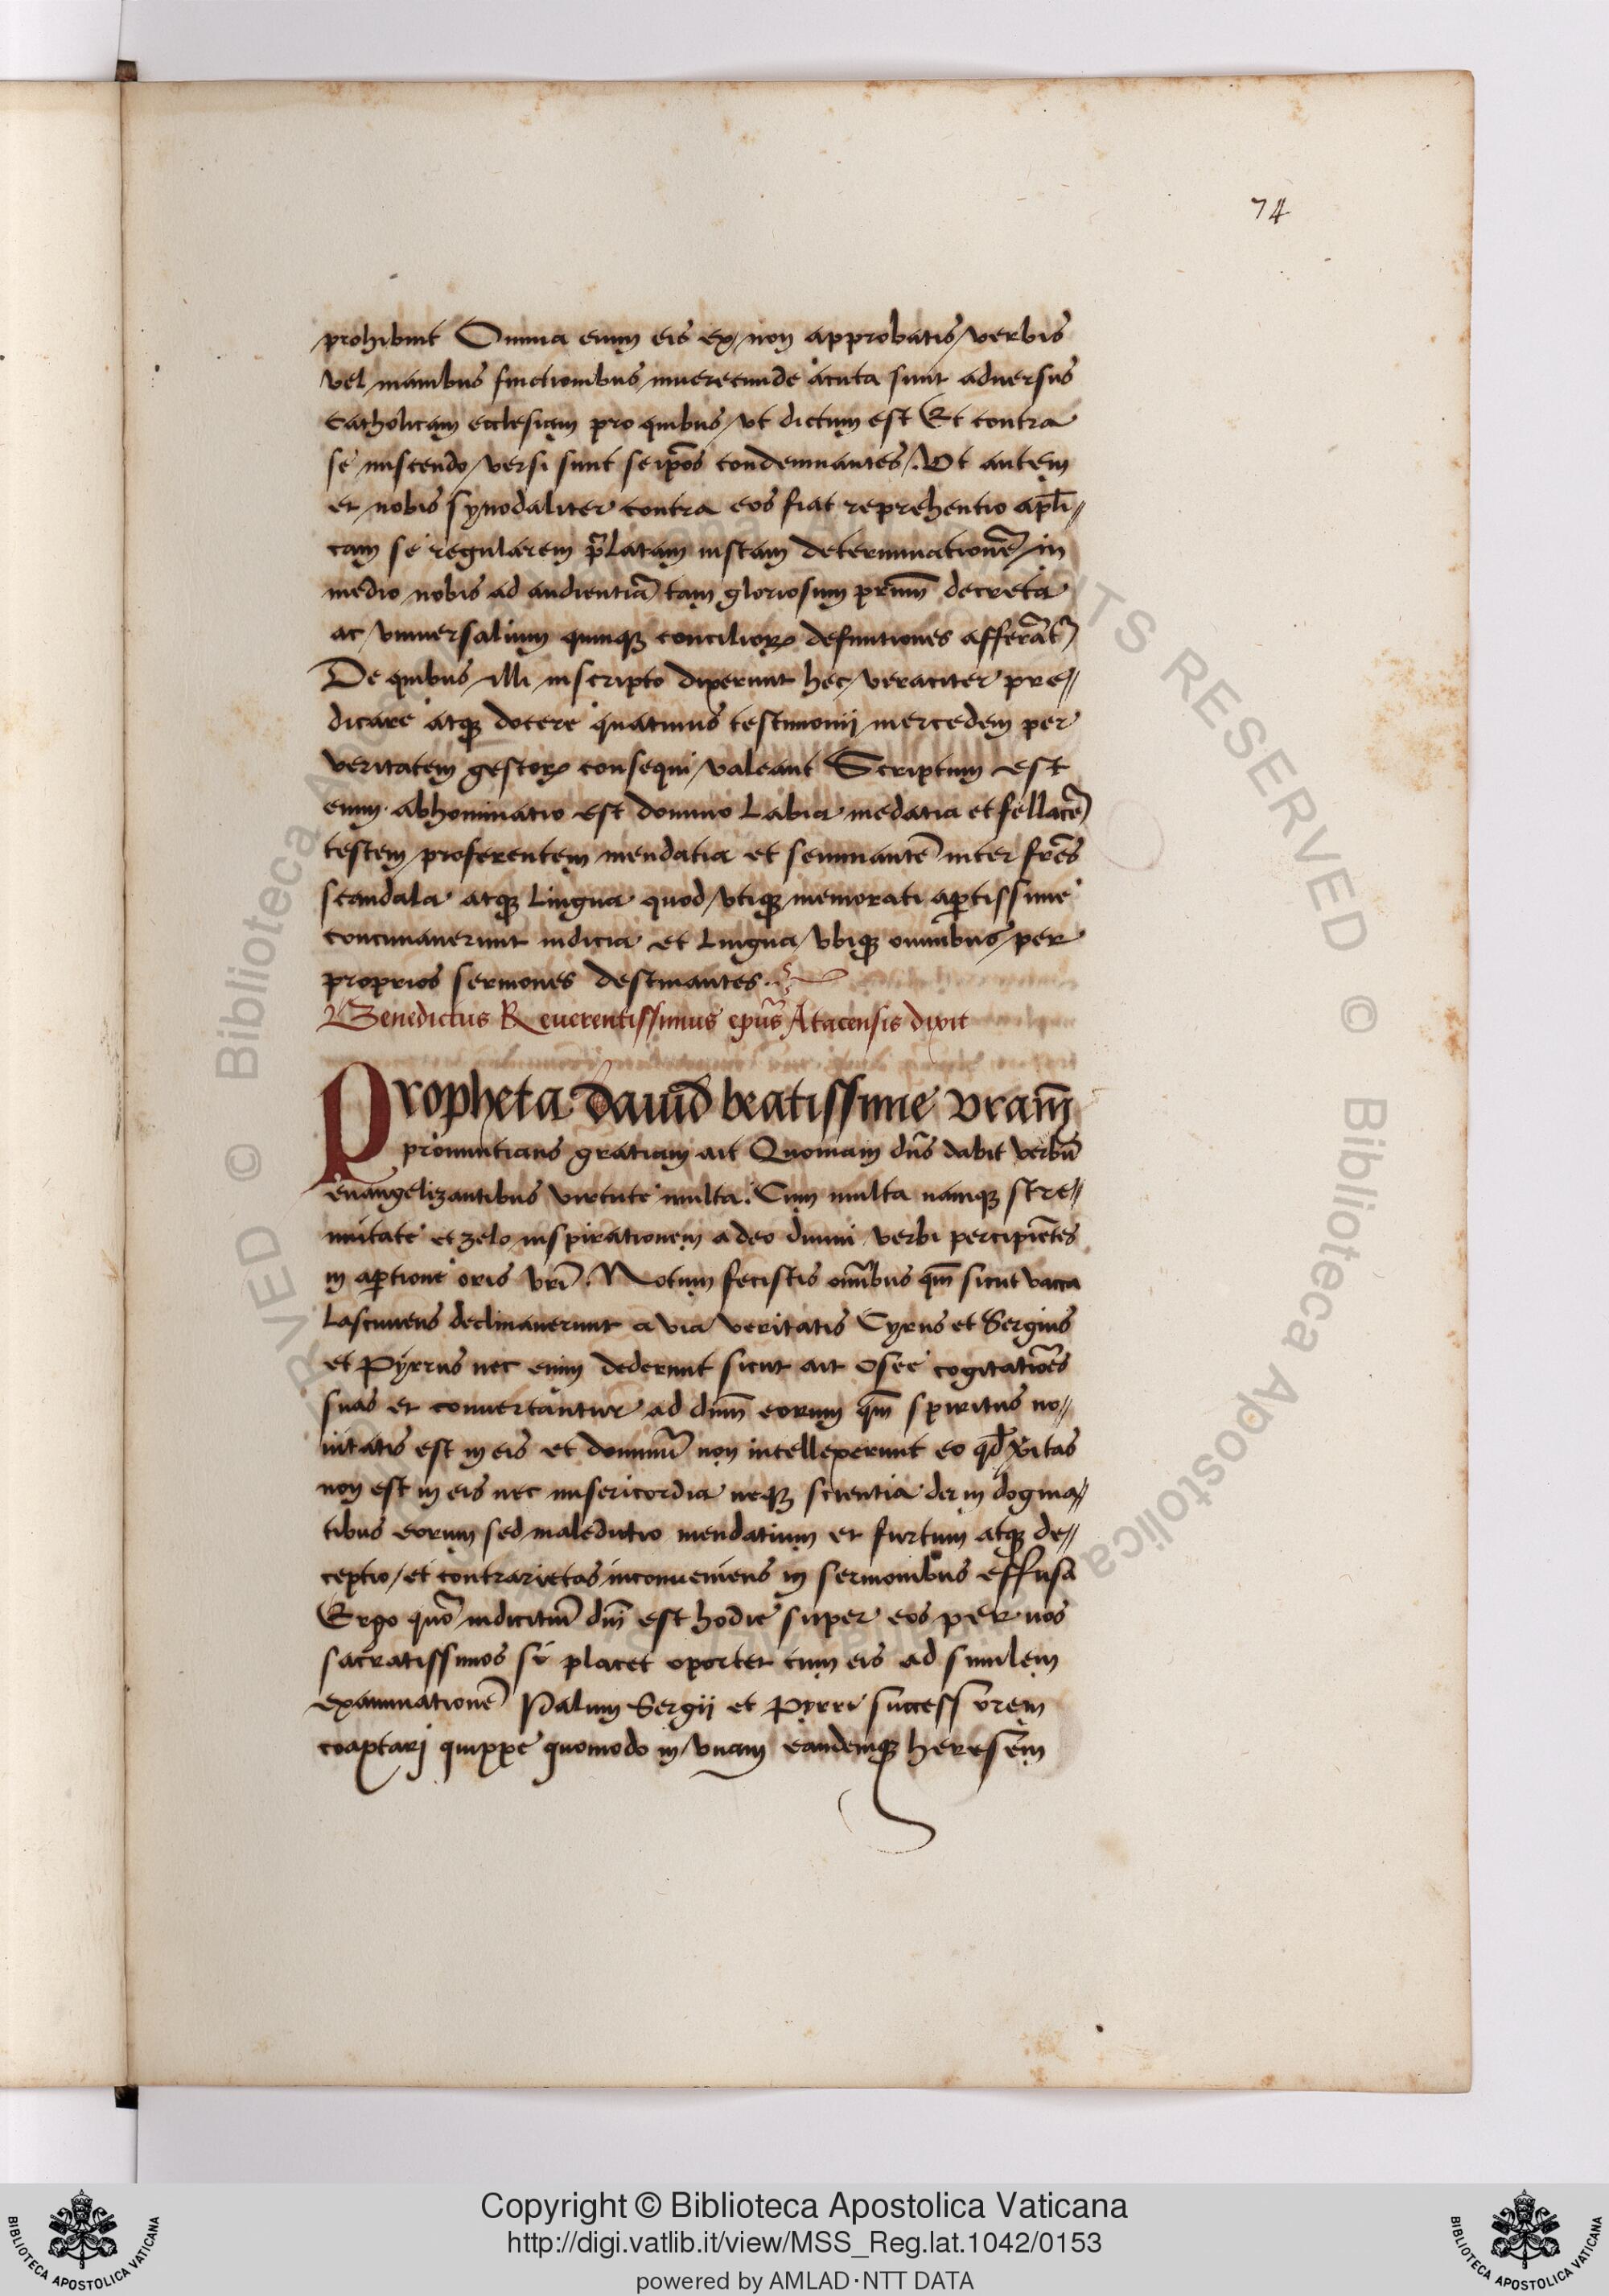 74
prohibunt Omnia enim eis ex non approbatis verbis
vel manibus sinctionibus inuerecunde acuta sunt aduersus
catholicam ecclesiam pro quibus vt dictum est Et contra
se miscendo versi sunt seipōs condemnantes. Vt autem
et nobis synodaliter contra eos fiat reprehentio apl̄i=
cam se regularem p̄latam iustam determinationē in
medio nobis ad audientiā tam gloriosum prūm decreta
ac vniuersalium quinqꝫ concilioꝝ definitiones afferāt᷑
De quibus illi inscripto dixerunt hec veraciter pre=
dicare atqꝫ docere quatinus testimonij mercedem per
veritatem gestoꝝ consequi valeant Scriptum est
enim abhominatio est domino Labia medatia et fellacē
testem proferentem mendatia et seminantē inter fr̄es
scandala atqꝫ Lingua quod vtiqꝫ memorati aꝑtissime
concinauerunt indicia et Lingua vbiqꝫ omnibus per
proprios sermones destinantes.
Benedictus Reuerentissimus ep̄us Atacensis dixit
Propheta dauid beatissime vram̄
pronuntians gratiam ait Quoniam dn̄s dabit verbū
euangelizantibus virtute multa. Cum multa namqꝫ stre=
nuitate et zelo inspirationem a deo diuini verbi percipiētes
in aꝑtione oris vr̄i. Notum fecistis om̄ibus qm̄ sicut vacca
Lasciuiens declinauerunt a via veritatis Cyrus et Sergius
et Pyrrus nec enim dederunt sicut ait osee cogitatiōes
suas et conuertantur ad dnm̄ eorum qm̄ spiritus no=
uitatis est in eis et dominū non intellexerunt eo qd̄ v̄itas
non est in eis nec misericordia neqꝫ scientia dei in dogma=
tibus eorum sed maledictio mendatium et furtum atqꝫ de=
ceptio et contrarietas inconueniens in sermonibus effusa
Ergo quō indicitiū dn̄i est hodie super eos per uos
sacratissimos si placet oportet cum eis ad similem
examinationē Palum Sergij et Pyrri successorem
coaptarj quippe quomodo in vnam eandemqꝫ heresēm
Copyright © Biblioteca Apostolica Vaticana
http://digi.vatlib.it/view/MSS_Reg.lat.1042/0153
powered by AMLAD·NTT DATA
BIBLIOTECA APOSTOLICA VATICANA
BIBLIOTECA APOSTOLICA VATICANA